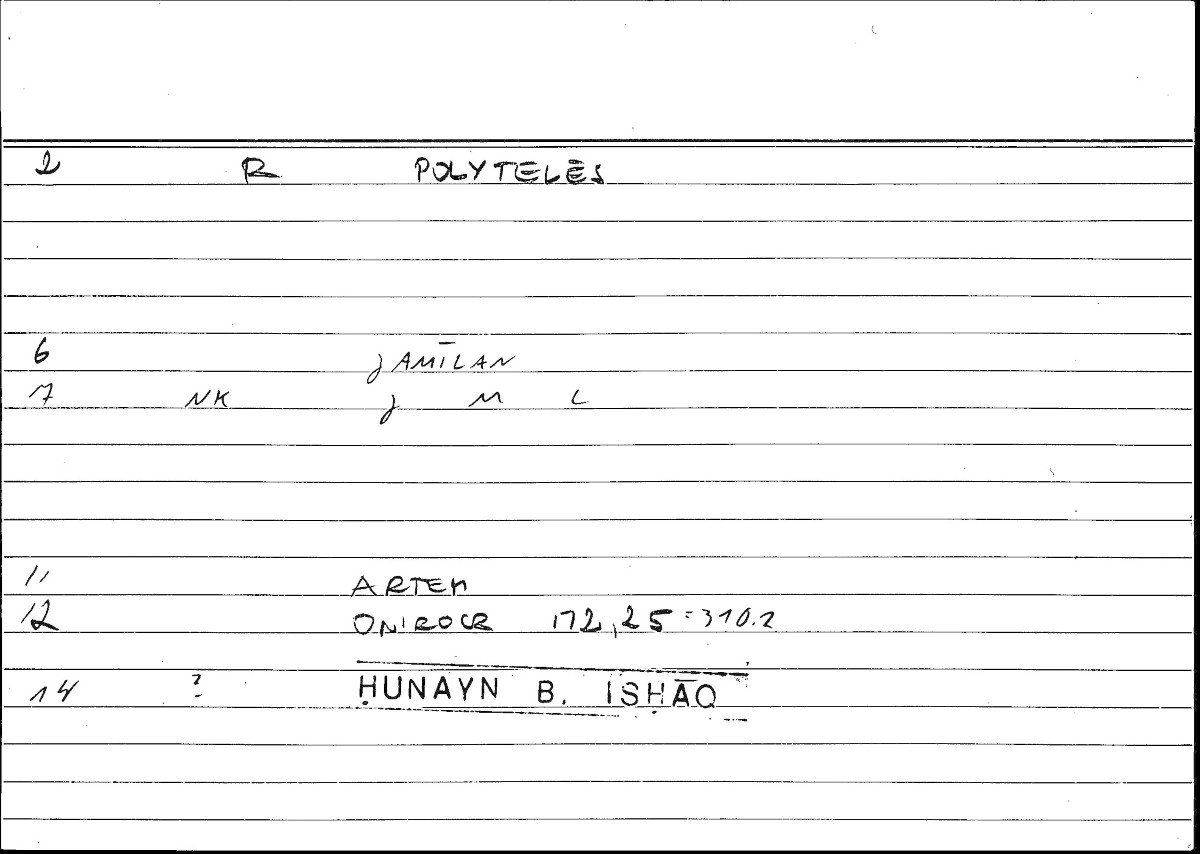 2 R POLYTELĒS
6 JAMĪLAN
7 NK J M L
11 ARTEM
12 ONIROCR 172,25=310.2
14 ? ḤUNAYN B. ISḤĀQ